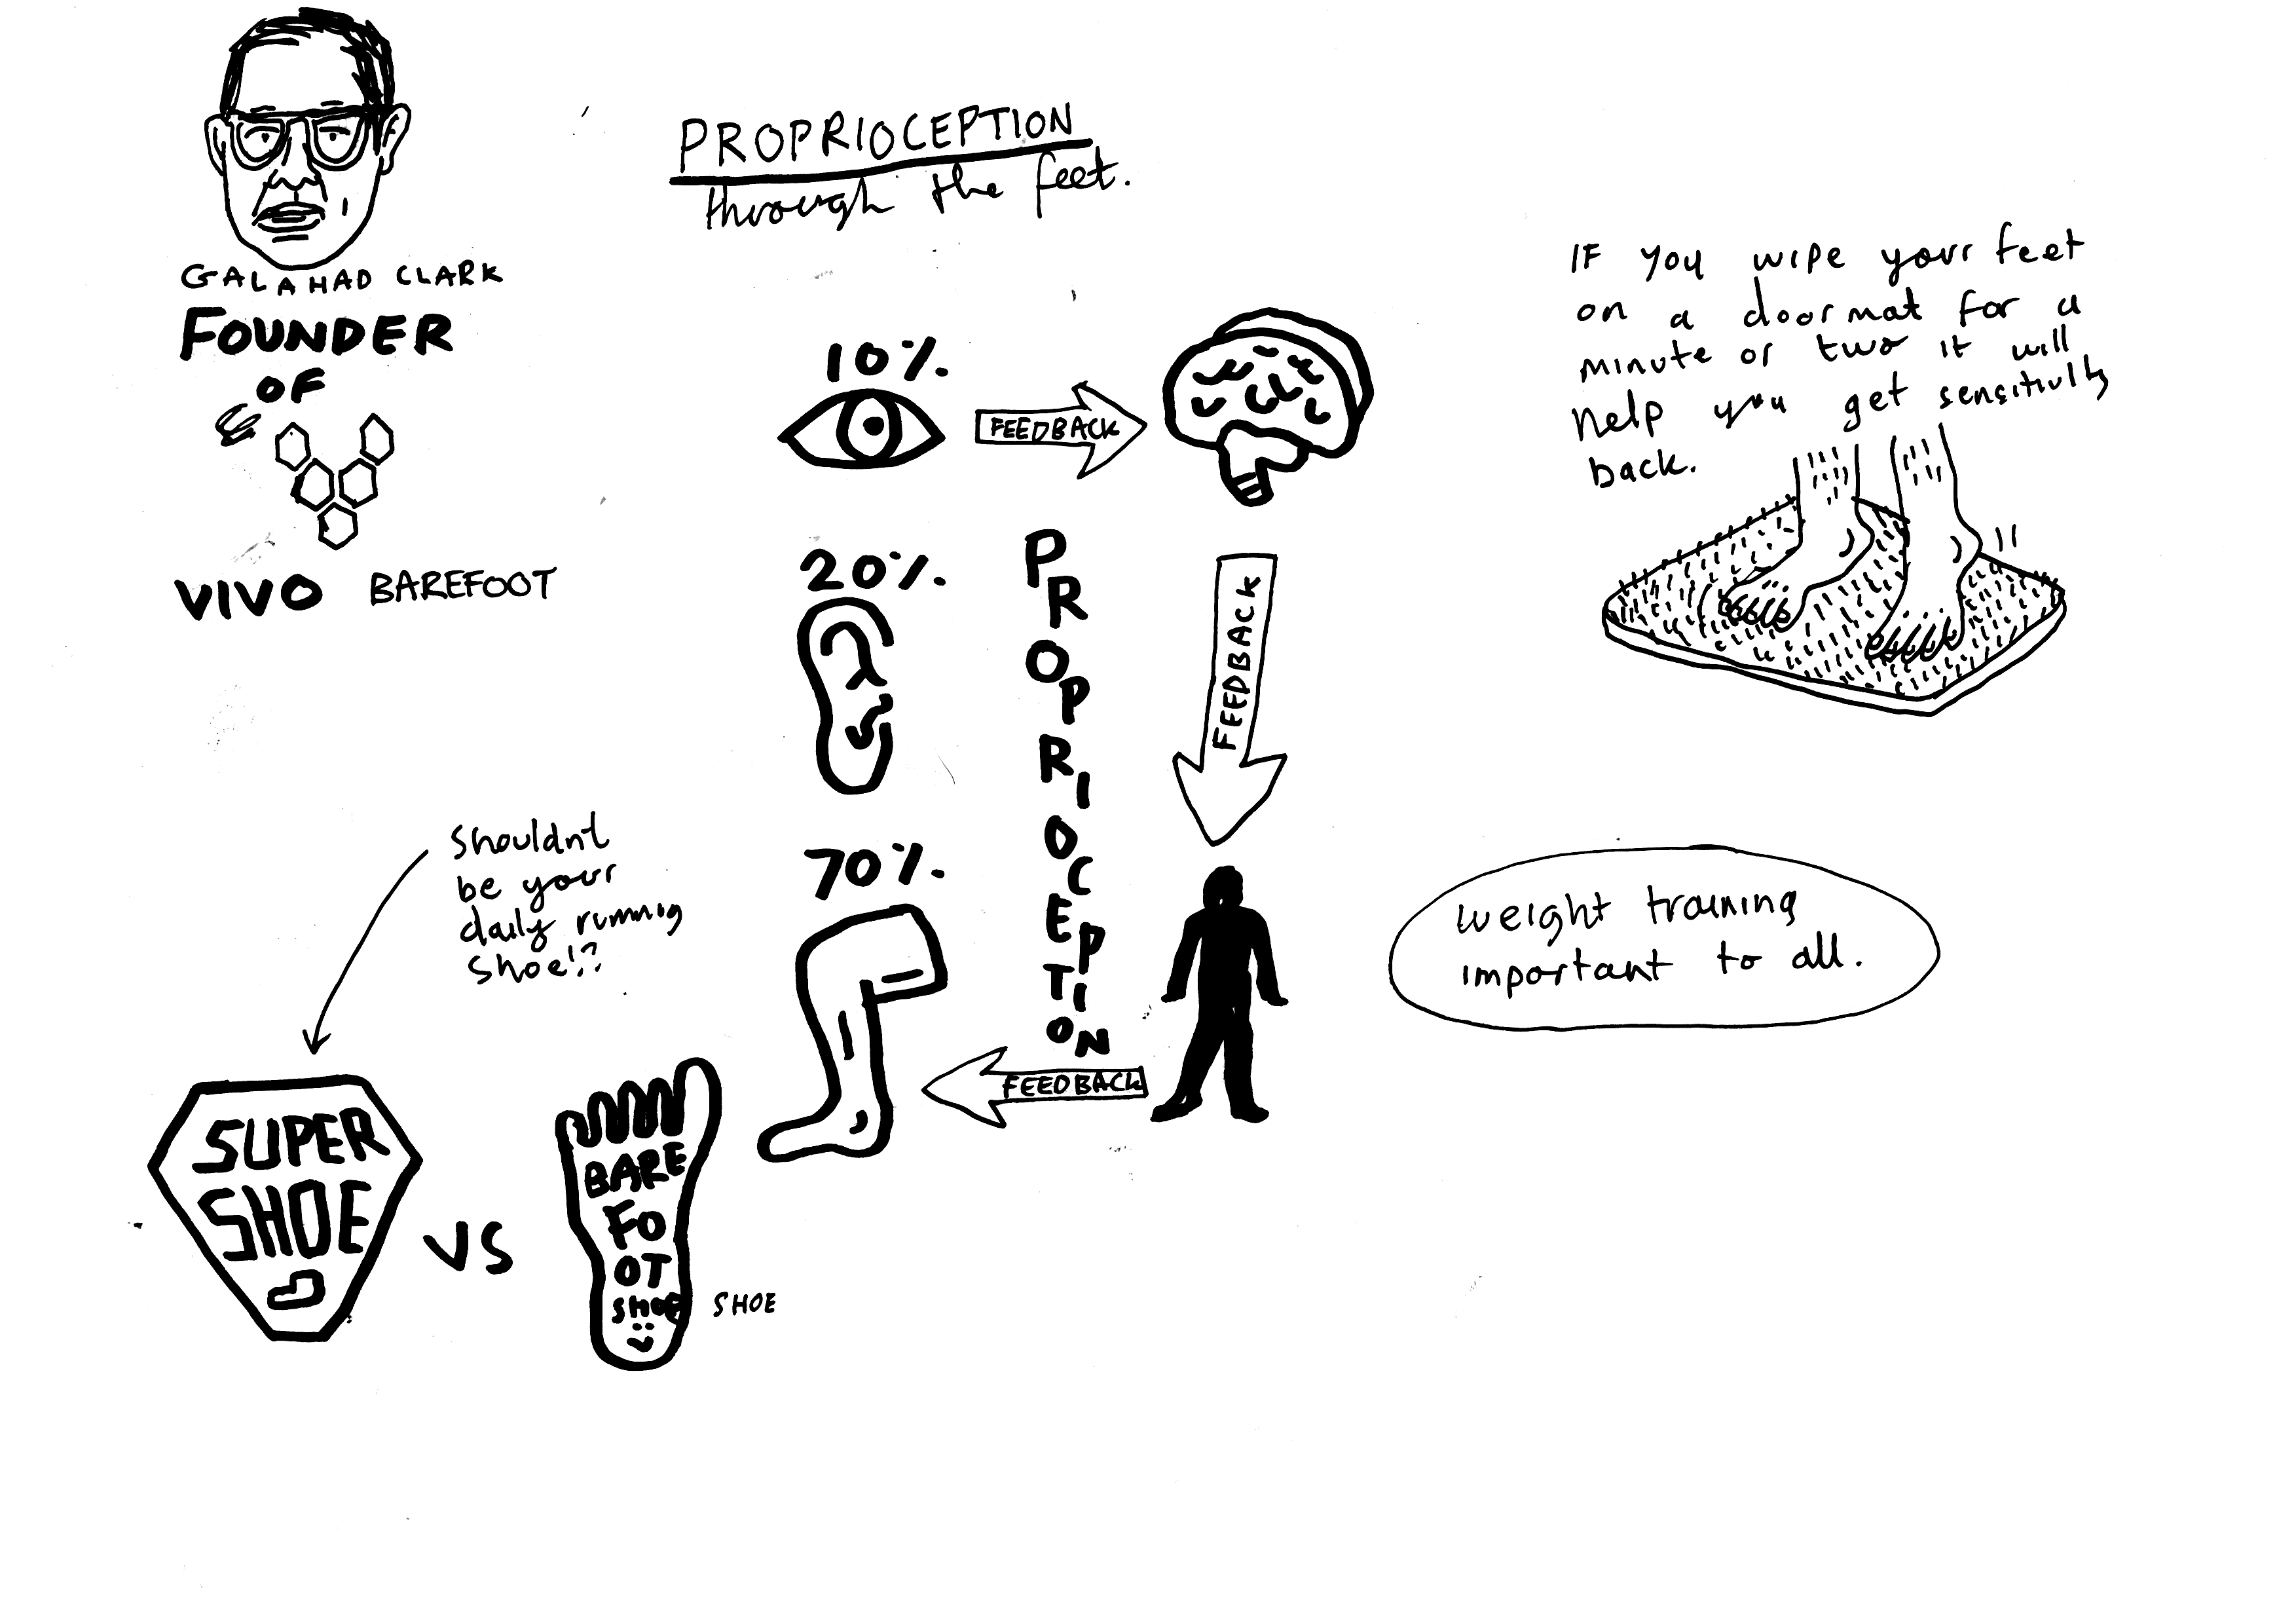 GALAHAD CLARK
FOUNDER
OF
VIVO BAREFOOT
PROPRIOCEPTION
through the feet.
10%
FEEDBACK
20%
PROPRIOCEPTION
FEEDBACK
70%
FEEDBACK
IF you wipe your feet
on a doormat for a
minute or two it will
help you get sensitivity
back.
weight training
important to all.
Shouldnt
be your
daily running
shoe!?
SUPER
SHOE
VS
BARE
FO
OT
SHOE
SHOE